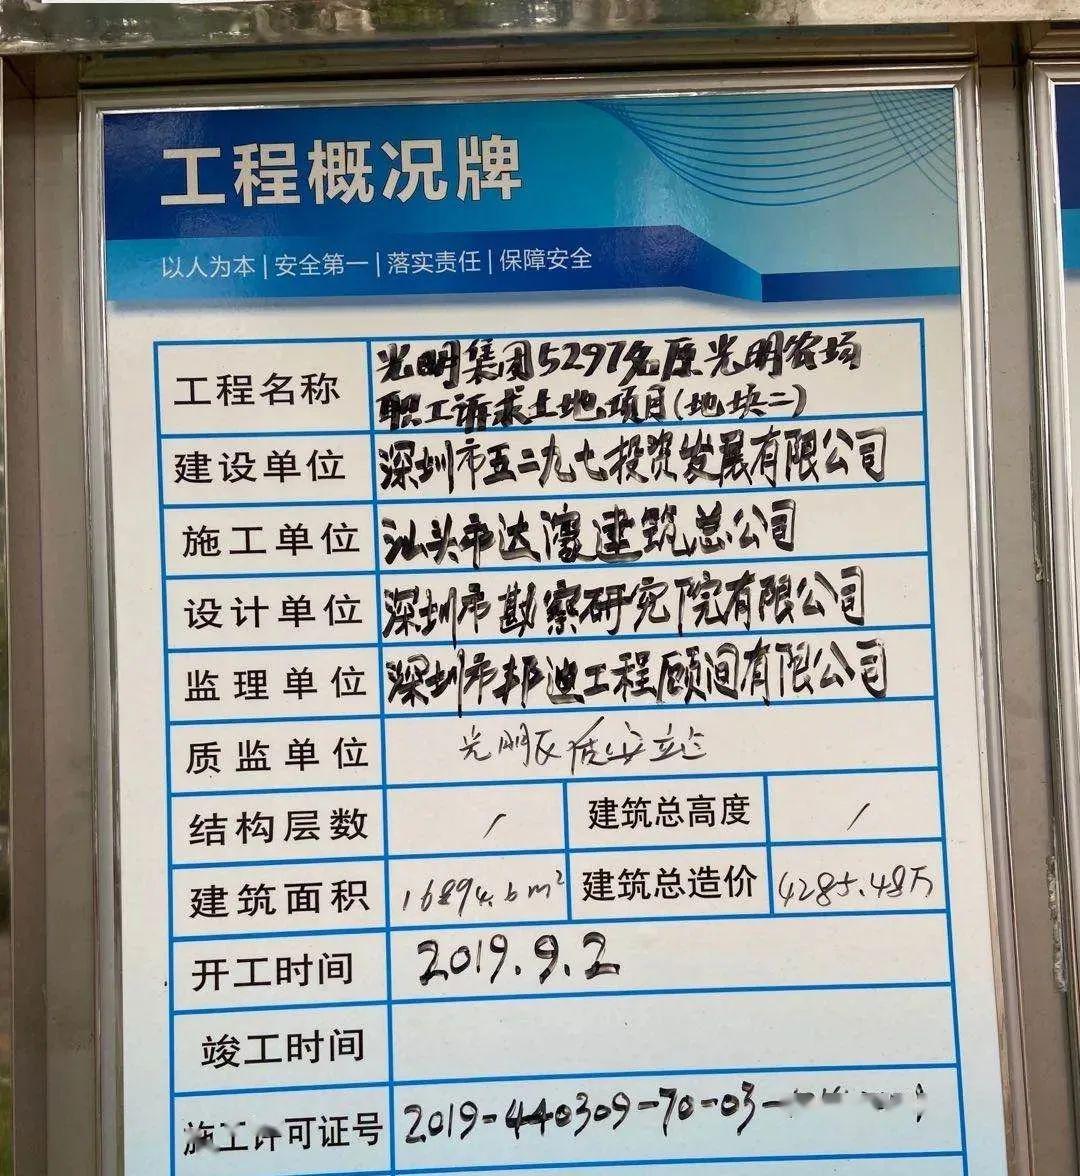 工程概况牌
以人为本|安全第一|落实责任|保障安全
工程名称 光明集团5297名原光明农场
职工诉求土地项目(地块二)
建设单位 深圳市五二九七投资发展有限公司
施工单位 汕头市达濠建筑总公司
设计单位 深圳市勘察研究院有限公司
监理单位 深圳市邦迪工程顾问有限公司
质监单位 光明区质安站
结构层数 / 建筑总高度 /
建筑面积 16894.6m² 建筑总造价 4285.48万
开工时间 2019.9.2
竣工时间
施工许可证号 2019-440309-70-03-